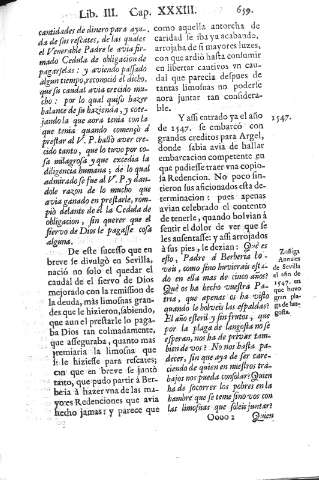 Lib. III. Cap. XXXIII. 659.
cantidades de dinero para ayu-
da de sus rescates, de las quales
el Venerable Padre le avia fir-
mado Cedula de obligacion de
pagarselas: y aviendo passado
algun tiempo, reconociò el dicho,
que su caudal avia crecido mu-
cho: por lo qual quiso hazer
balance de su hazienda, y cote-
jandola que aora tenia con la
que tenia quando començò à
prestar al V. P. hallò aver cre-
cido tanto, que lo tuvo por co-
sa milagrosa y que excedia la
diligencia humana; de lo qual
admirado se fue al V. P. y dan-
dole razon de lo mucho que
avia ganado en prestarle, rom-
piò delante de èl la Cedula de
obligacion, sin querer que el
siervo de Dios le pagasse cosa
alguna.
De este sucesso que en
breve se divulgò en Sevilla,
naciò no solo el quedar el
caudal de el siervo de Dios
mejorado con la remission de
la deuda, mas limosnas gran-
des que le hizieron, sabiendo,
que aun el prestarle lo paga-
ba Dios tan colmadamente,
que asseguraba, quanto mas
premiaria la limosna que
le hiziesse para rescates;
con que en breve se juntò
tanto, que pudo partir à Ber-
beria à hazer vna de las ma-
yores Redenciones que avia
hecho jamas: y parece que
como aquella antorcha de
caridad se iba yà acabando,
arrojaba de sì mayores luzes,
con que ardiò hasta consumir
en libertar cautivos vn cau-
dal que parecia despues de
tantas limosnas no poderle
aora juntar tan considera-
ble.
Y assi entrado yà el año
de 1547. se embarcò con
grandes creditos para Argel,
donde sabia avia de hallar
embarcacion competente en
que pudiesse traer vna copio-
sa Redencion. No poco sin-
tieron sus aficionados esta de-
terminacion: pues apenas
avian celebrado el contento
de tenerle, quando bolvian à
sentir el dolor de ver que se
les ausentasse: y assi arrojados
à sus pies, le dezian: Què es
esto, Padre à Berberia lo
van, como sino huvierais esta-
do en ella mas de cinco años?
Què os ha hecho vuestra Pa-
tria, que apenas os ha visto
quando le bolveis las espaldas?
El año esteril y sin frutos, que
por la plaga de langosta no se
esperan, nos ha de privar tam-
bien de vos? No nos basta pa-
decer, sin que aya de ser care-
ciendo de quien en nuestros tra-
bajos nos pueda consolar? Quien
ha de socorrer los pobres en la
hambre que se teme sino vos con
las limosnas que soleis juntar?
Oooo 2 Quien
1547.
Zuñiga
Annales
de Sevilla
el año
1547. en
que huvo
gran pla-
ga de lan-
gosta.